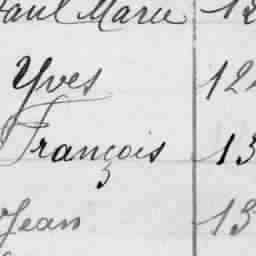 Paul Marie 12
Yves 12
François 13
Jean 13